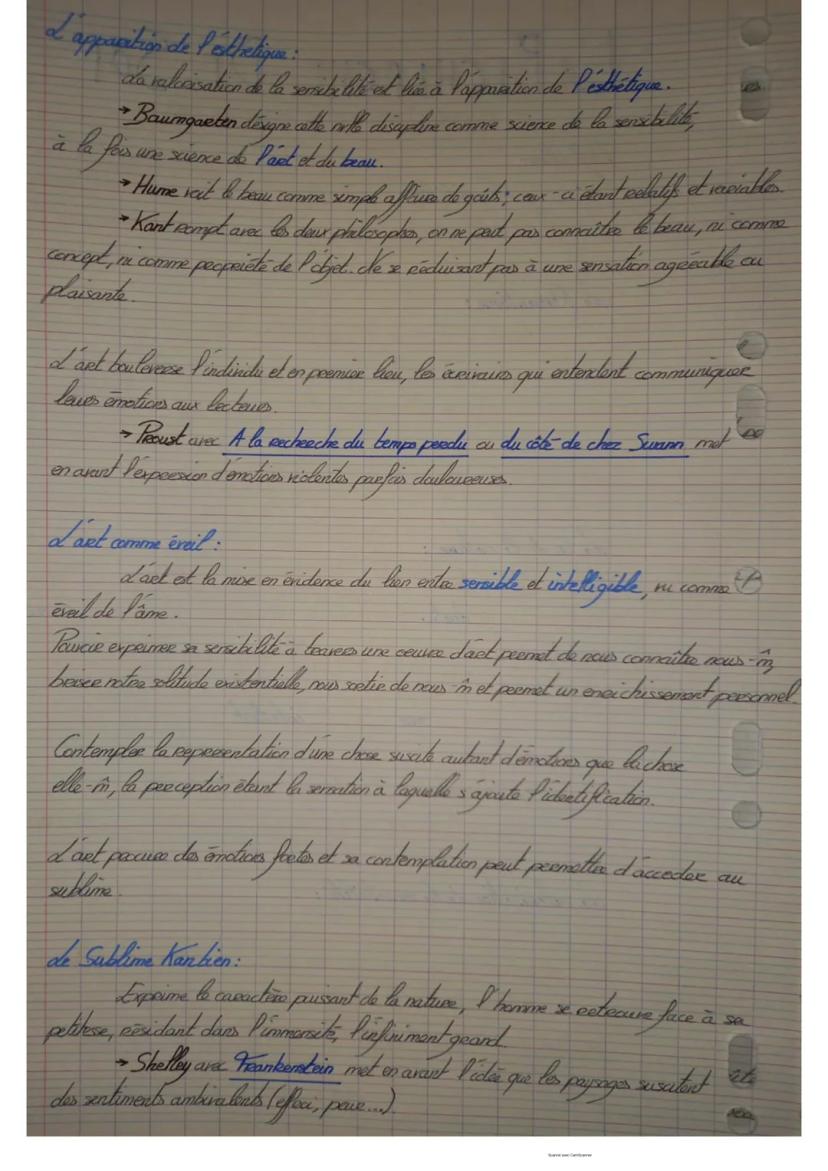 L'apparition de l'ésthétique :
La valorisation de la sensibilité est liée à l'apparition de l'ésthétique.
→ Baumgarten désigne cette nvlle discipline comme science de la sensibilité,
à la fois une science de l'art et du beau.
→ Hume voit le beau comme simple affaire de goûts ; ceux-ci étant relatifs et variables.
→ Kant rompt avec les deux philosophes, on ne peut pas connaître le beau, ni comme
concept, ni comme propriété de l'objet. Ne se réduisant pas à une sensation agréable ou
plaisante.
L'art bouleverse l'individu et en premier lieu, les écrivains qui entendent communiquer
leurs émotions aux lecteurs.
→ Proust avec A la recherche du temps perdu ou du côté de chez Swann met
en avant l'expression d'émotions violentes parfois douloureuses.
L'art comme éveil :
L'art est la mise en évidence du lien entre sensible et intelligible, vu comme
éveil de l'âme.
Pouvoir exprimer sa sensibilité à travers une oeuvre d'art permet de nous connaître nous-m̂,
briser notre solitude existentielle, nous sortir de nous-m̂ et permet un enrichissement personnel.
Contempler la représentation d'une chose suscite autant d'émotions que la chose
elle-m̂, la perception étant la sensation à laquelle s'ajoute l'identification.
L'art procure des émotions fortes et sa contemplation peut permettre d'accéder au
sublime.
Le Sublime Kantien :
Exprime le caractère puissant de la nature, l'homme se retrouve face à sa
petitesse, résidant dans l'immensité, l'infiniment grand.
→ Shelley avec Frankenstein met en avant l'idée que les paysages suscitent
des sentiments ambivalents (effroi, peur...).
Scanné avec CamScanner